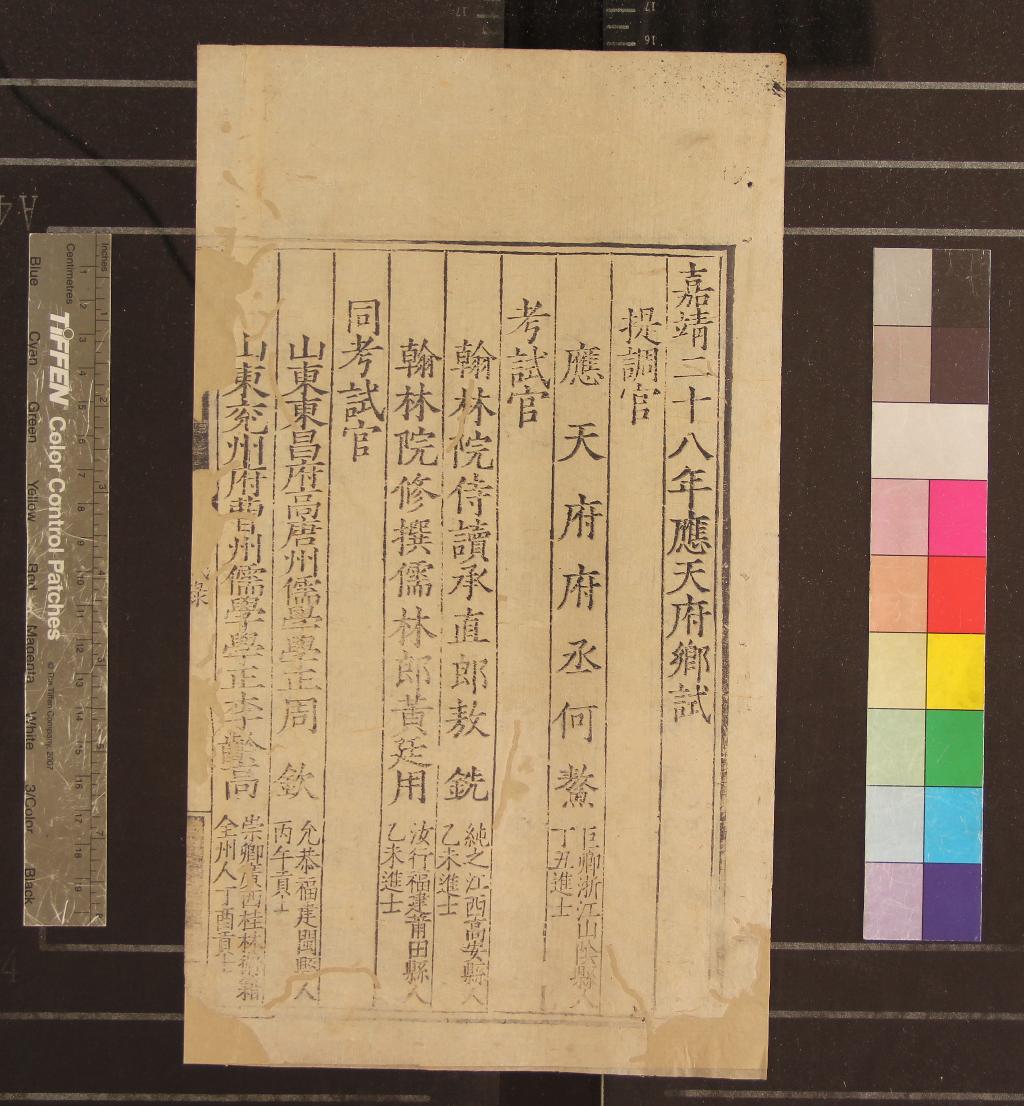 嘉靖二十八年應天府鄉試
提調官
應天府府丞何鰲
巨卿浙江山陰縣人
丁丑進士
考試官
翰林院侍讀承直郎敖銑
純之江西高安縣人
乙未進士
翰林院修撰儒林郎黃廷用
汝行福建莆田縣人
乙未進士
同考試官
山東東昌府高唐州儒學學正周欽
允恭福建閩縣人
丙午貢士
山東兗州府曹州儒學學正李齡高
崇卿廣西桂林府
全州人丁酉貢士
錄
TIFFEN Color Control Patches
© The Tiffen Company, 2007
Inches
Centimetres
Blue Cyan Green Yellow Red Magenta White 3/Color Black
A4